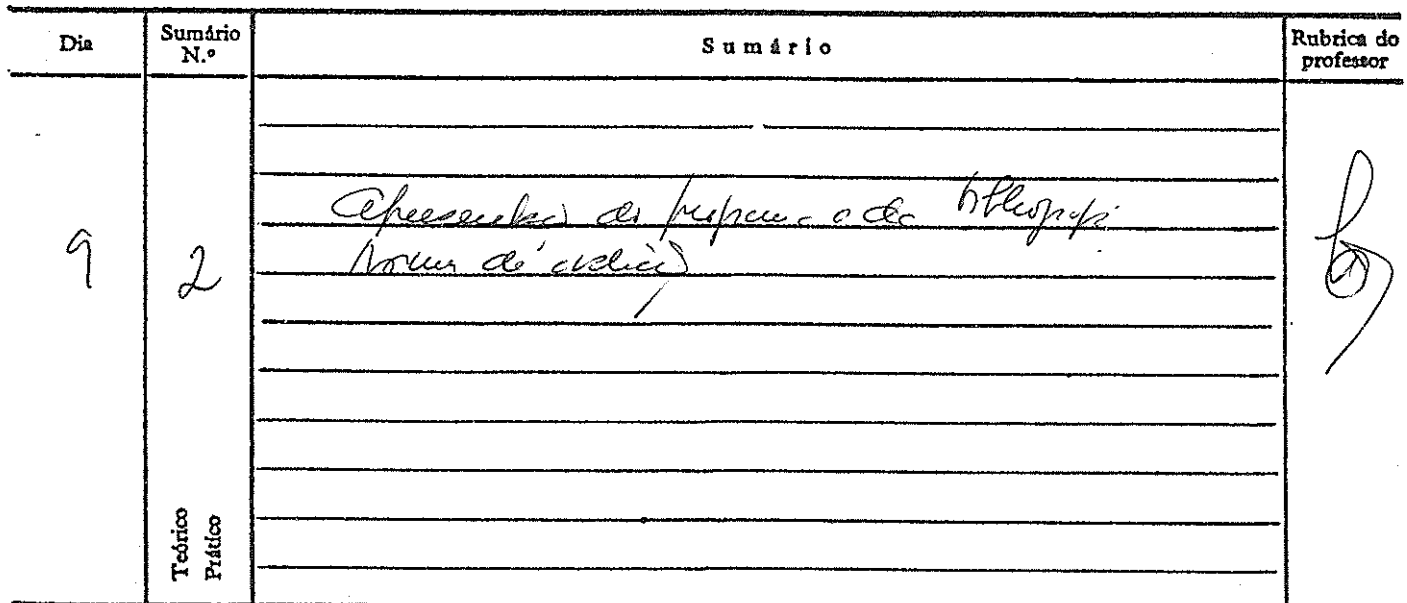 Dia
Sumário N.º
Sumário
Rubrica do professor
9
2
Apresentação do programa e da bibliografia
Normas de avaliação
Teórico
Prático